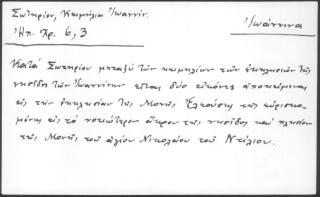 Σωτηρίου, Κειμήλια Ἰωαννίν.
Ἠπ. Χρ. 6, 3
Ἰωάννινα
Κατὰ Σωτηρίου μεταξὺ τῶν κειμηλίων τῶν ἐκκλησιῶν τῆς
νησῖδος τῶν Ἰωαννίνων εἶναι δύο εἰκόνες ἀποκείμεναι
εἰς τὴν ἐκκλησίαν τῆς Μονῆς Ἐλεούσης τῆς εὑρισκο-
μένης εἰς τὸ νοτιώτερον ἄκρον τῆς νησῖδος καὶ πλησίον
τῆς Μονῆς τοῦ ἁγίου Νικολάου τοῦ Ντίλιου.